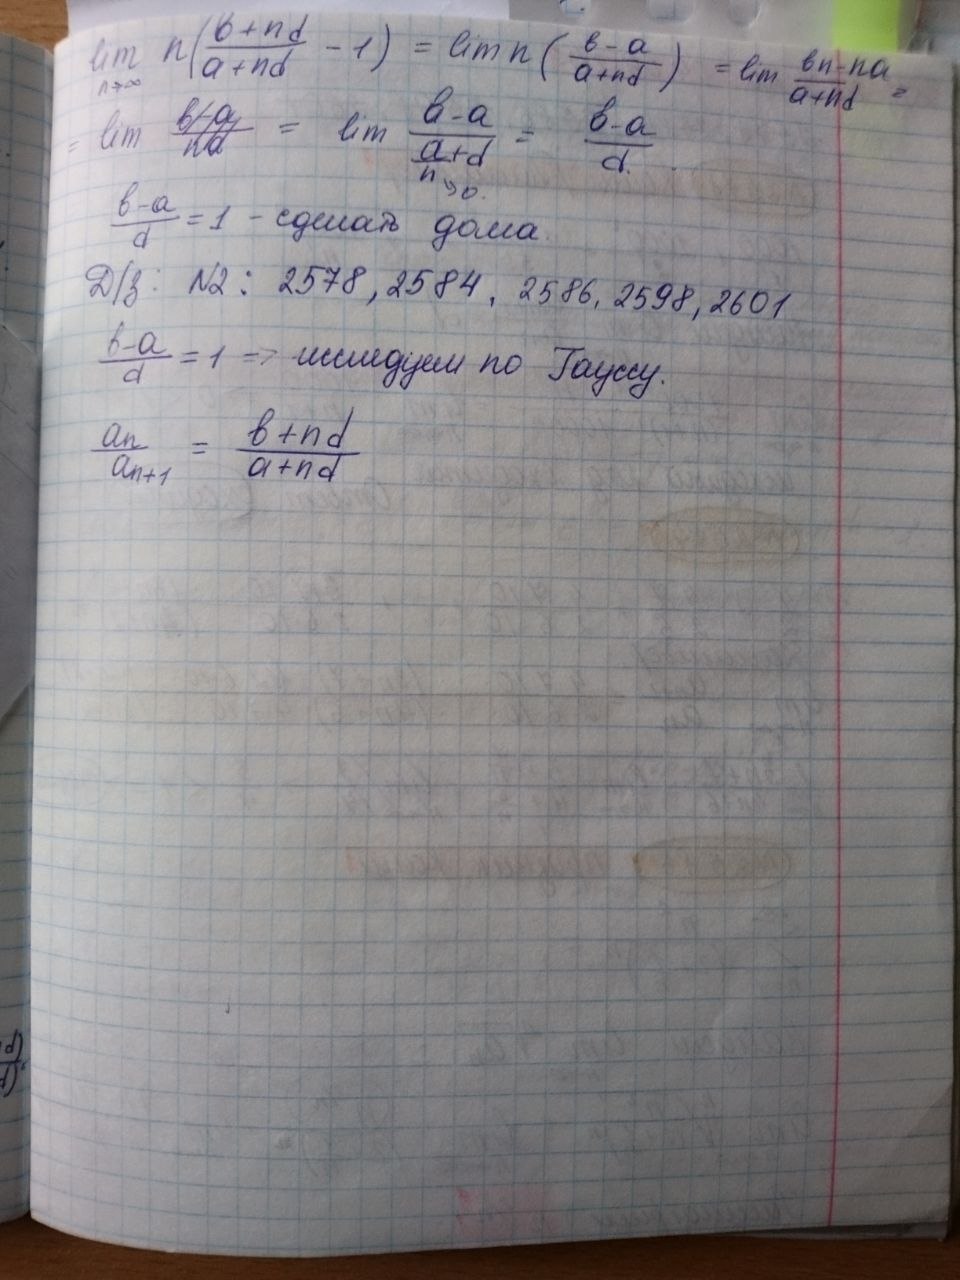 lim n→∞ n( (b+nd)/(a+nd) − 1 ) = lim n ( (b−a)/(a+nd) ) = lim (bn−na)/(a+nd) =
= lim (b−a)/(nd) = lim (b−a)/(a/n+d) →0 = (b−a)/d.
(b−a)/d = 1 – сделать дома.
Д/з: №2: 2578, 2584, 2586, 2598, 2601
(b−a)/d = 1 => исследуем по Гауссу.
an/an+1 = (b+nd)/(a+nd)